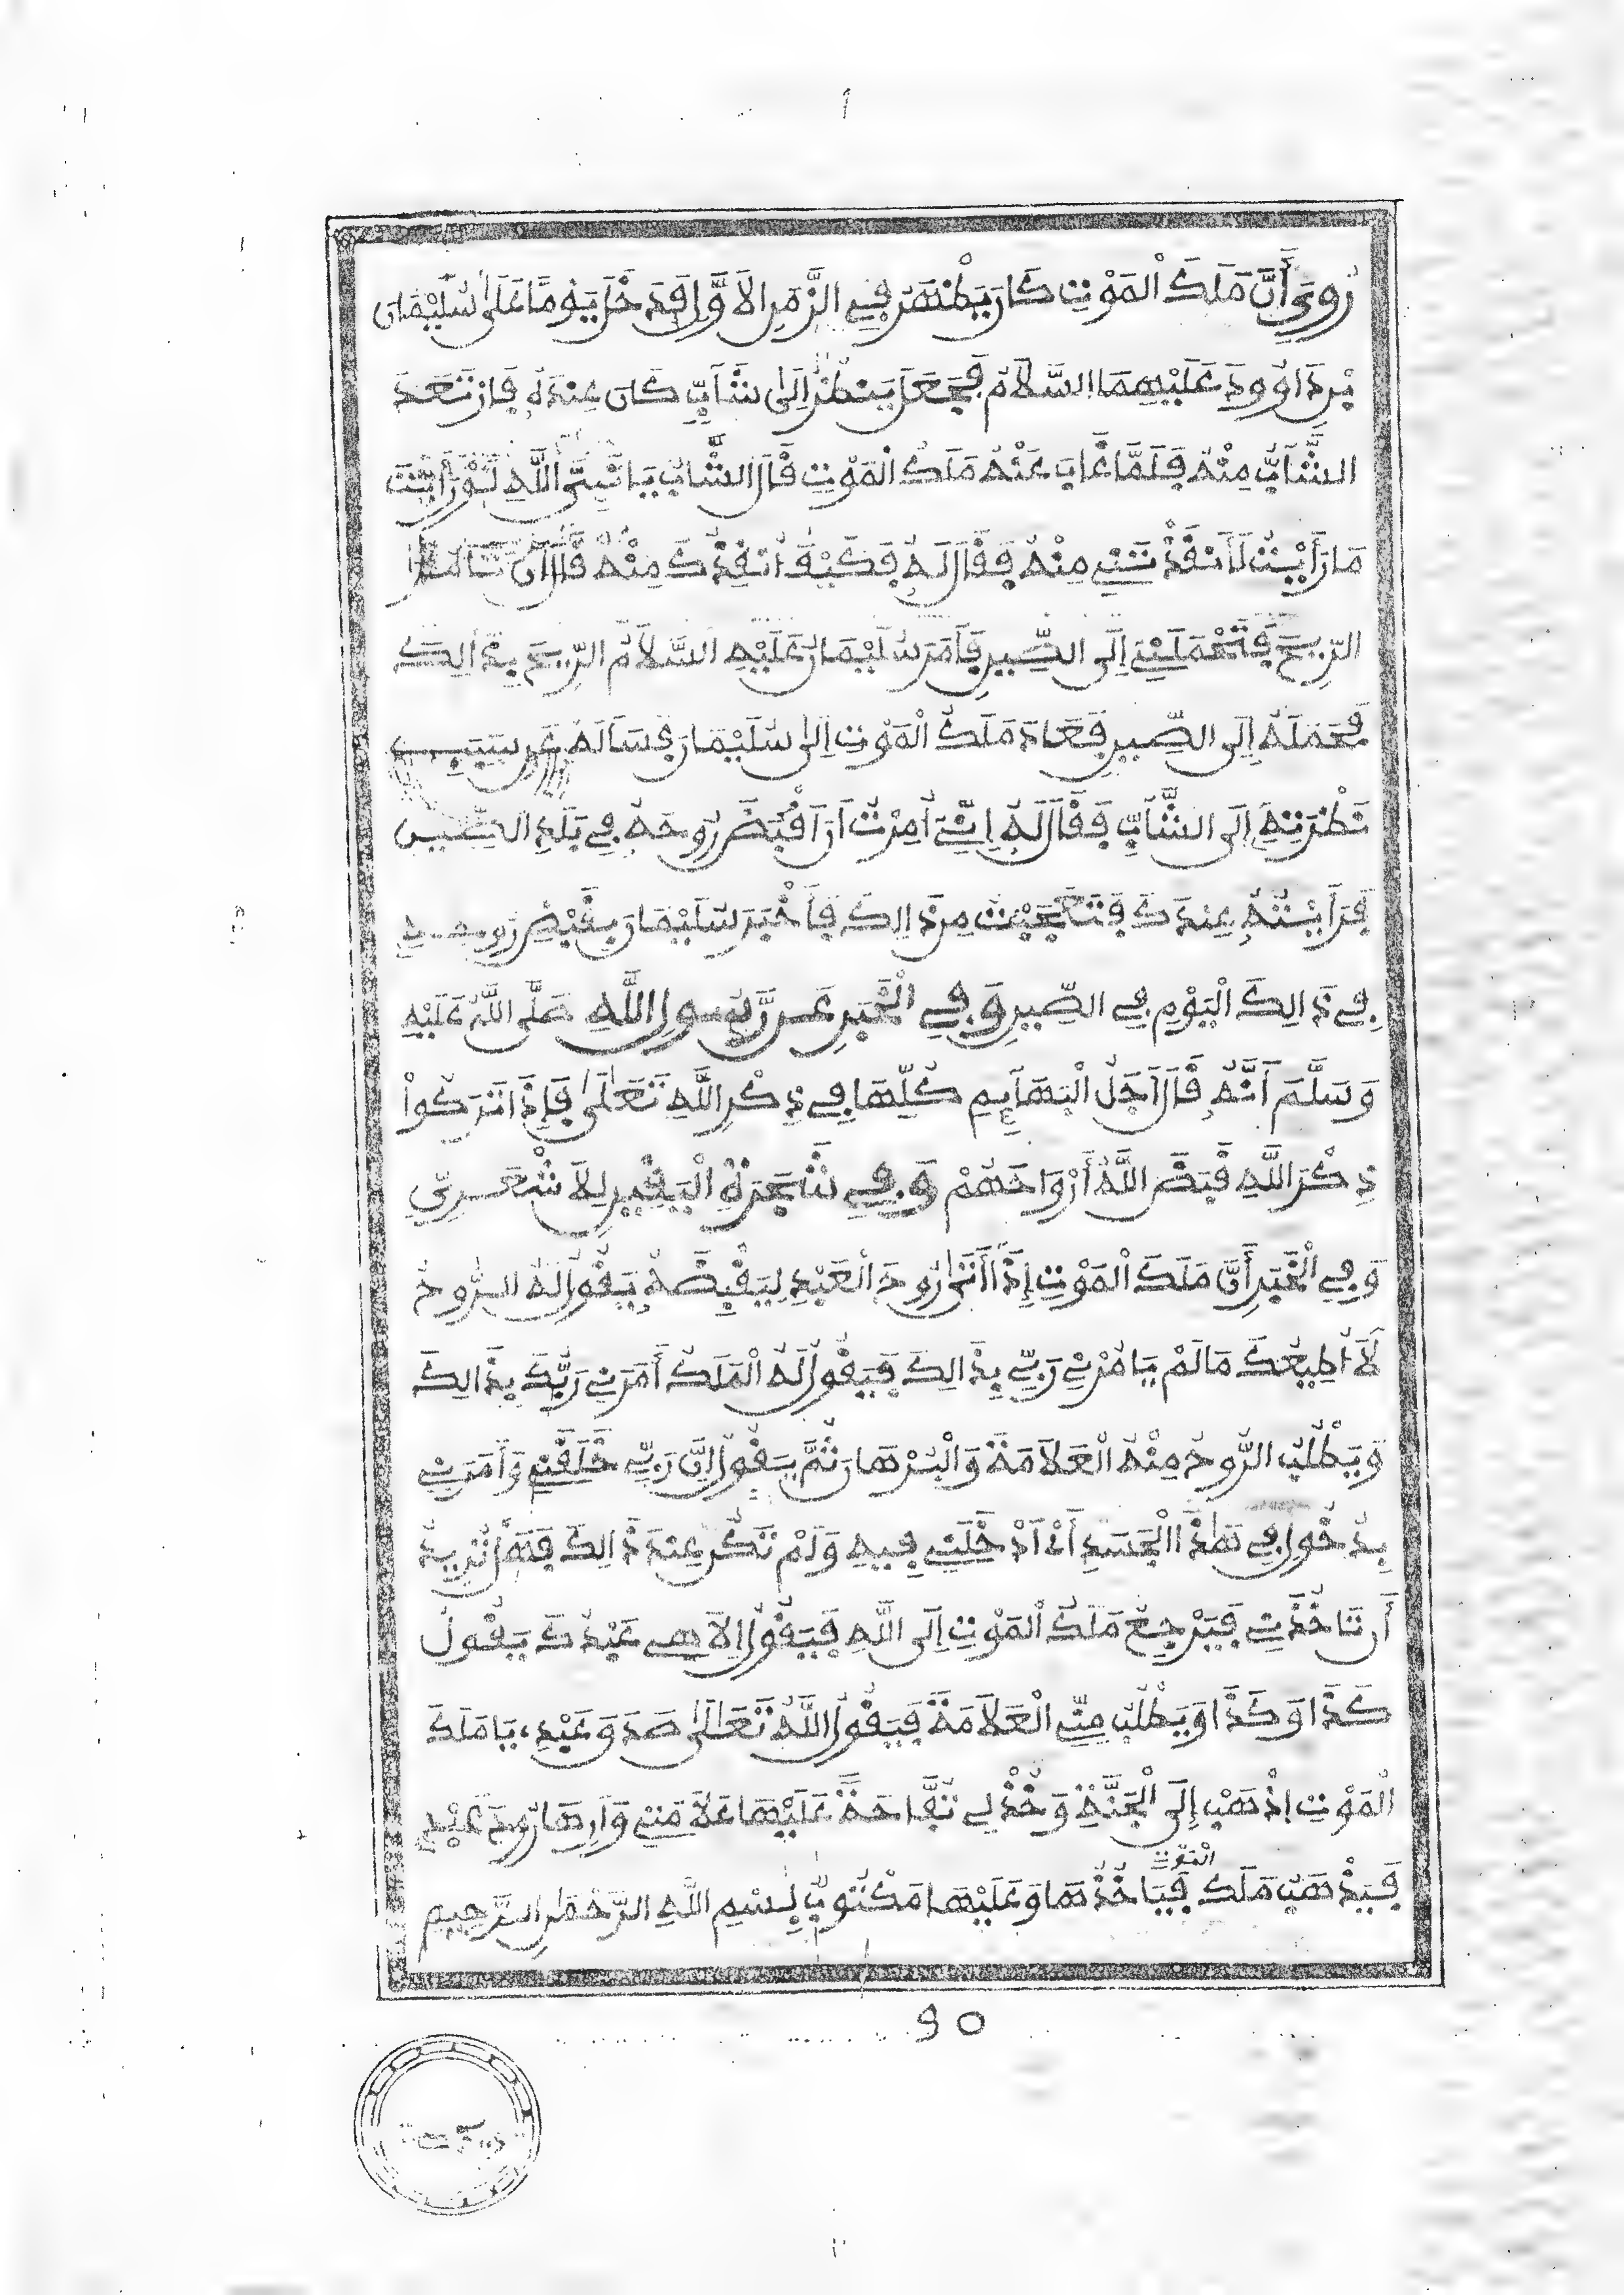 رُوِيَ أَنَّ مَلَكَ الْمَوْتِ كَانَ يَظْهَرُ فِي الزَّمَنِ الأَوَّلِ فَدَخَلَ يَوْمًا عَلَى سُلَيْمَانَ
بْنِ دَاوُودَ عَلَيْهِمَا السَّلاَمُ فَجَعَلَ يَنْظُرُ إِلَى شَآبٍّ كَانَ عِنْدَهُ فَارْتَعَدَ
الشَّآبُّ مِنْهُ فَلَمَّا غَابَ عَنْهُ مَلَكُ الْمَوْتِ قَالَ الشَّابُّ يَا نَبِيَّ اللَّهِ لَوْ رَأَيْتَ
مَا رَأَيْتُ لَأَنقَذْتَنِي مِنْهُ فَقَالَ لَهُ فَكَيْفَ أُنقِذُكَ مِنْهُ قَالَ أَنْ تَامُرَ
الرِّيحَ فَتَحْمِلَنِي إِلَى الصِّينِ فَأَمَرَ سُلَيْمَانُ عَلَيْهِ السَّلاَمُ الرِّيحَ بِذَالِكَ
فَحَمَلَهُ إِلَى الصِّينِ فَعَادَ مَلَكُ الْمَوْتِ إِلَى سُلَيْمَانَ فَسَأَلَهُ عَنِ سَبَبِ
نَظْرَتِهِ إِلَى الشَّآبِّ فَقَالَ لَهُ إِنِّي أُمِرْتُ أَنَ اَقْبَضَ رُوحَهُ فِي بَلَدِ الصِّينِ
فَرَأَيْتُهُ عِندَكَ فَتَعَجَّبْتُ مِن ذَالِكَ فَأَخْبَرَ سُلَيْمَانَ بِقَبْضِ رُوحِهِ
فِي ذَالِكَ الْيَوْمِ فِي الصِّينِ وَفِي الْخَبَرِ عَن رَّسُولِ اللَّهِ صَلَّى اللَّهُ عَلَيْهِ
وَسَلَّمَ أَنَّهُ قَالَ أَجَلُ الْبَهَآئِمِ كُلِّهَا فِي ذِكْرِ اللَّهِ تَعَلَى فَإِذَا تَرَكُواْ
ذِكْرَ اللَّهِ قَبَضَ اللَّهُ أَرْوَاحَهُمْ وَفِي شَجَرَةِ الْيَقِينِ لِلأَشْعَرِيِّ
وَفِي الْخَبَرِ أَنَّ مَلَكَ الْمَوْتِ إِذَا أَتَى رُوحَ الْعَبْدِ لِيَقْبِضَهُ يَقُولُ لَهُ الرُّوحُ
لَا أُطِيعُكَ مَا لَمْ يَامُرْنِي رَبِّي بِذَالِكَ فَيَقُولُ لَهُ الْمَلَكُ أَمَرَنِي رَبُّكَ بِذَالِكَ
وَيَطْلُبُ الرُّوحُ مِنْهُ الْعَلاَمَةَ وَالْبُرْهَانَ ثُمَّ يَقُولُ إِنَّ رَبِّي خَلَقَنِي وَأَمَرَنِي
بِدُخُولِ فِي هَذَا الْجَسَدِ أَنْ اَدْخَلَنِي فِيهِ وَلَمْ تَكُن عِندَ ذَالِكَ فَهَلْ تُرِيدُ
أَن تَاخُذَنِي فَيَرْجِعُ مَلَكُ الْمَوْتِ إِلَى اللَّهِ فَيَقُولُ إِلاَهِي عَبْدُكَ يَقُولُ
كَذَا وَكَذَا وَيَطْلُبُ مِنِّي الْعَلاَمَةَ فَيَقُولُ اللَّهُ تَعَالَى صَدَقَ عَبْدِي يَا مَلَكَ
الْمَوْتِ إِذْهَبْ إِلَى الْجَنَّةِ وَخُذْ لِي تُفَّاحَةً عَلَيْهَا عَلاَمَتِي وَأَرِهَا رُوحَ عَبْدِي
فَيَذْهَبُ مَلَكُ الْمَوْتِ فَيَاخُذُهَا وَعَلَيْهَا مَكْتُوبٌ بِسْمِ اللَّهِ الرَّحْمَنِ الرَّحِيمِ
90